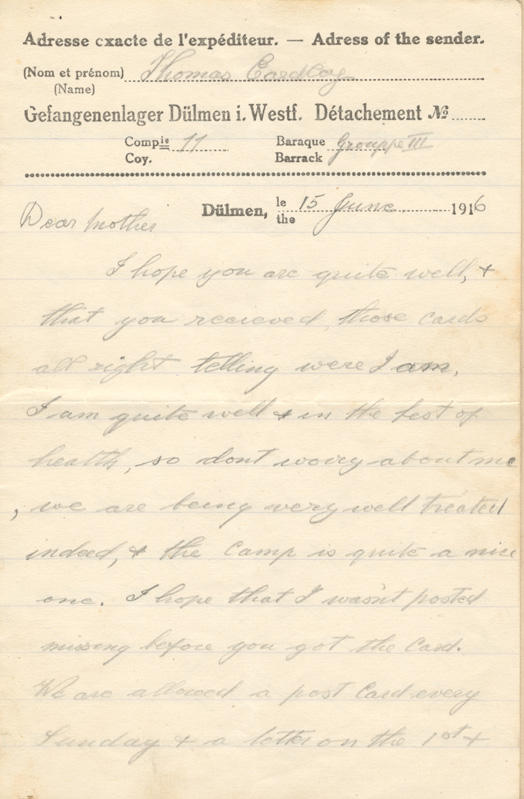 Adresse exacte de l'expéditeur. — Adress of the sender.
(Nom et prénom) Thomas
(Name)
Gefangenenlager Dülmen i. Westf. Détachement №
Compie 11 Baraque Grouppe III
Coy. Barrack
Dülmen, le 15 June 1916
the
Dear Mother
I hope you are quite well, +
that you recieved, those cards
all right telling were I am.
I am quite well + in the best of
health, so dont worry about me
, we are being very well treated
indeed, + the Camp is quite a nice
one. I hope that I wasnt posted
missing before you got the Card.
We are allowed a post Card every
Sunday + a letter on the 1st +